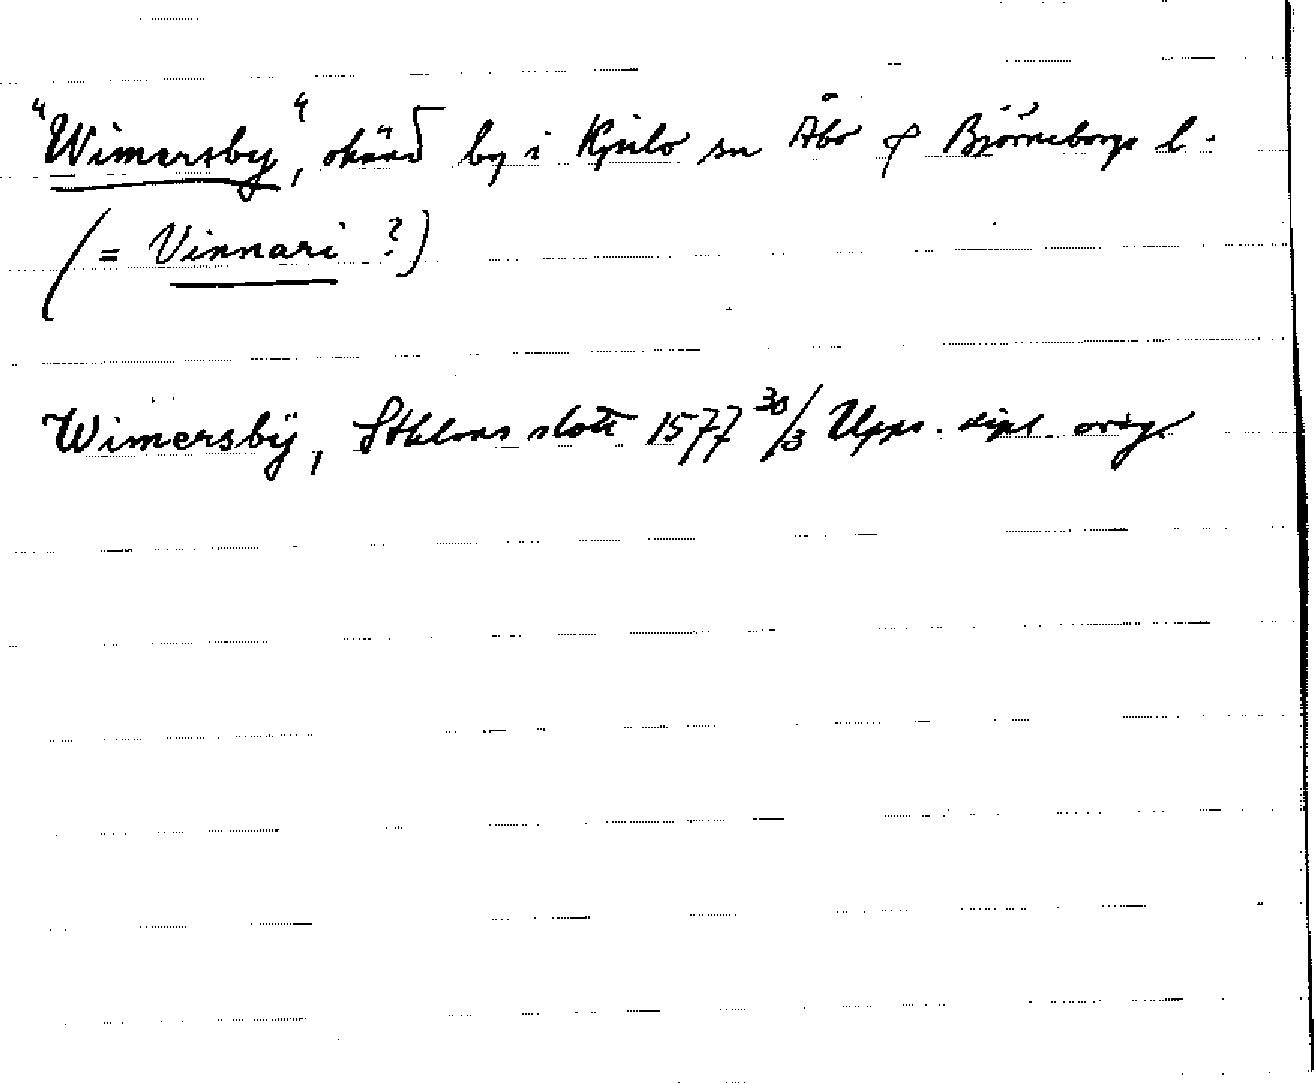 "Wimersby", okänd by i Kjulo sn Åbo & Björneborgs l.
(= Vinnari ?)
Wimersbÿ, Sthlms slott 1577 30/3 Upps. dipl. orig.